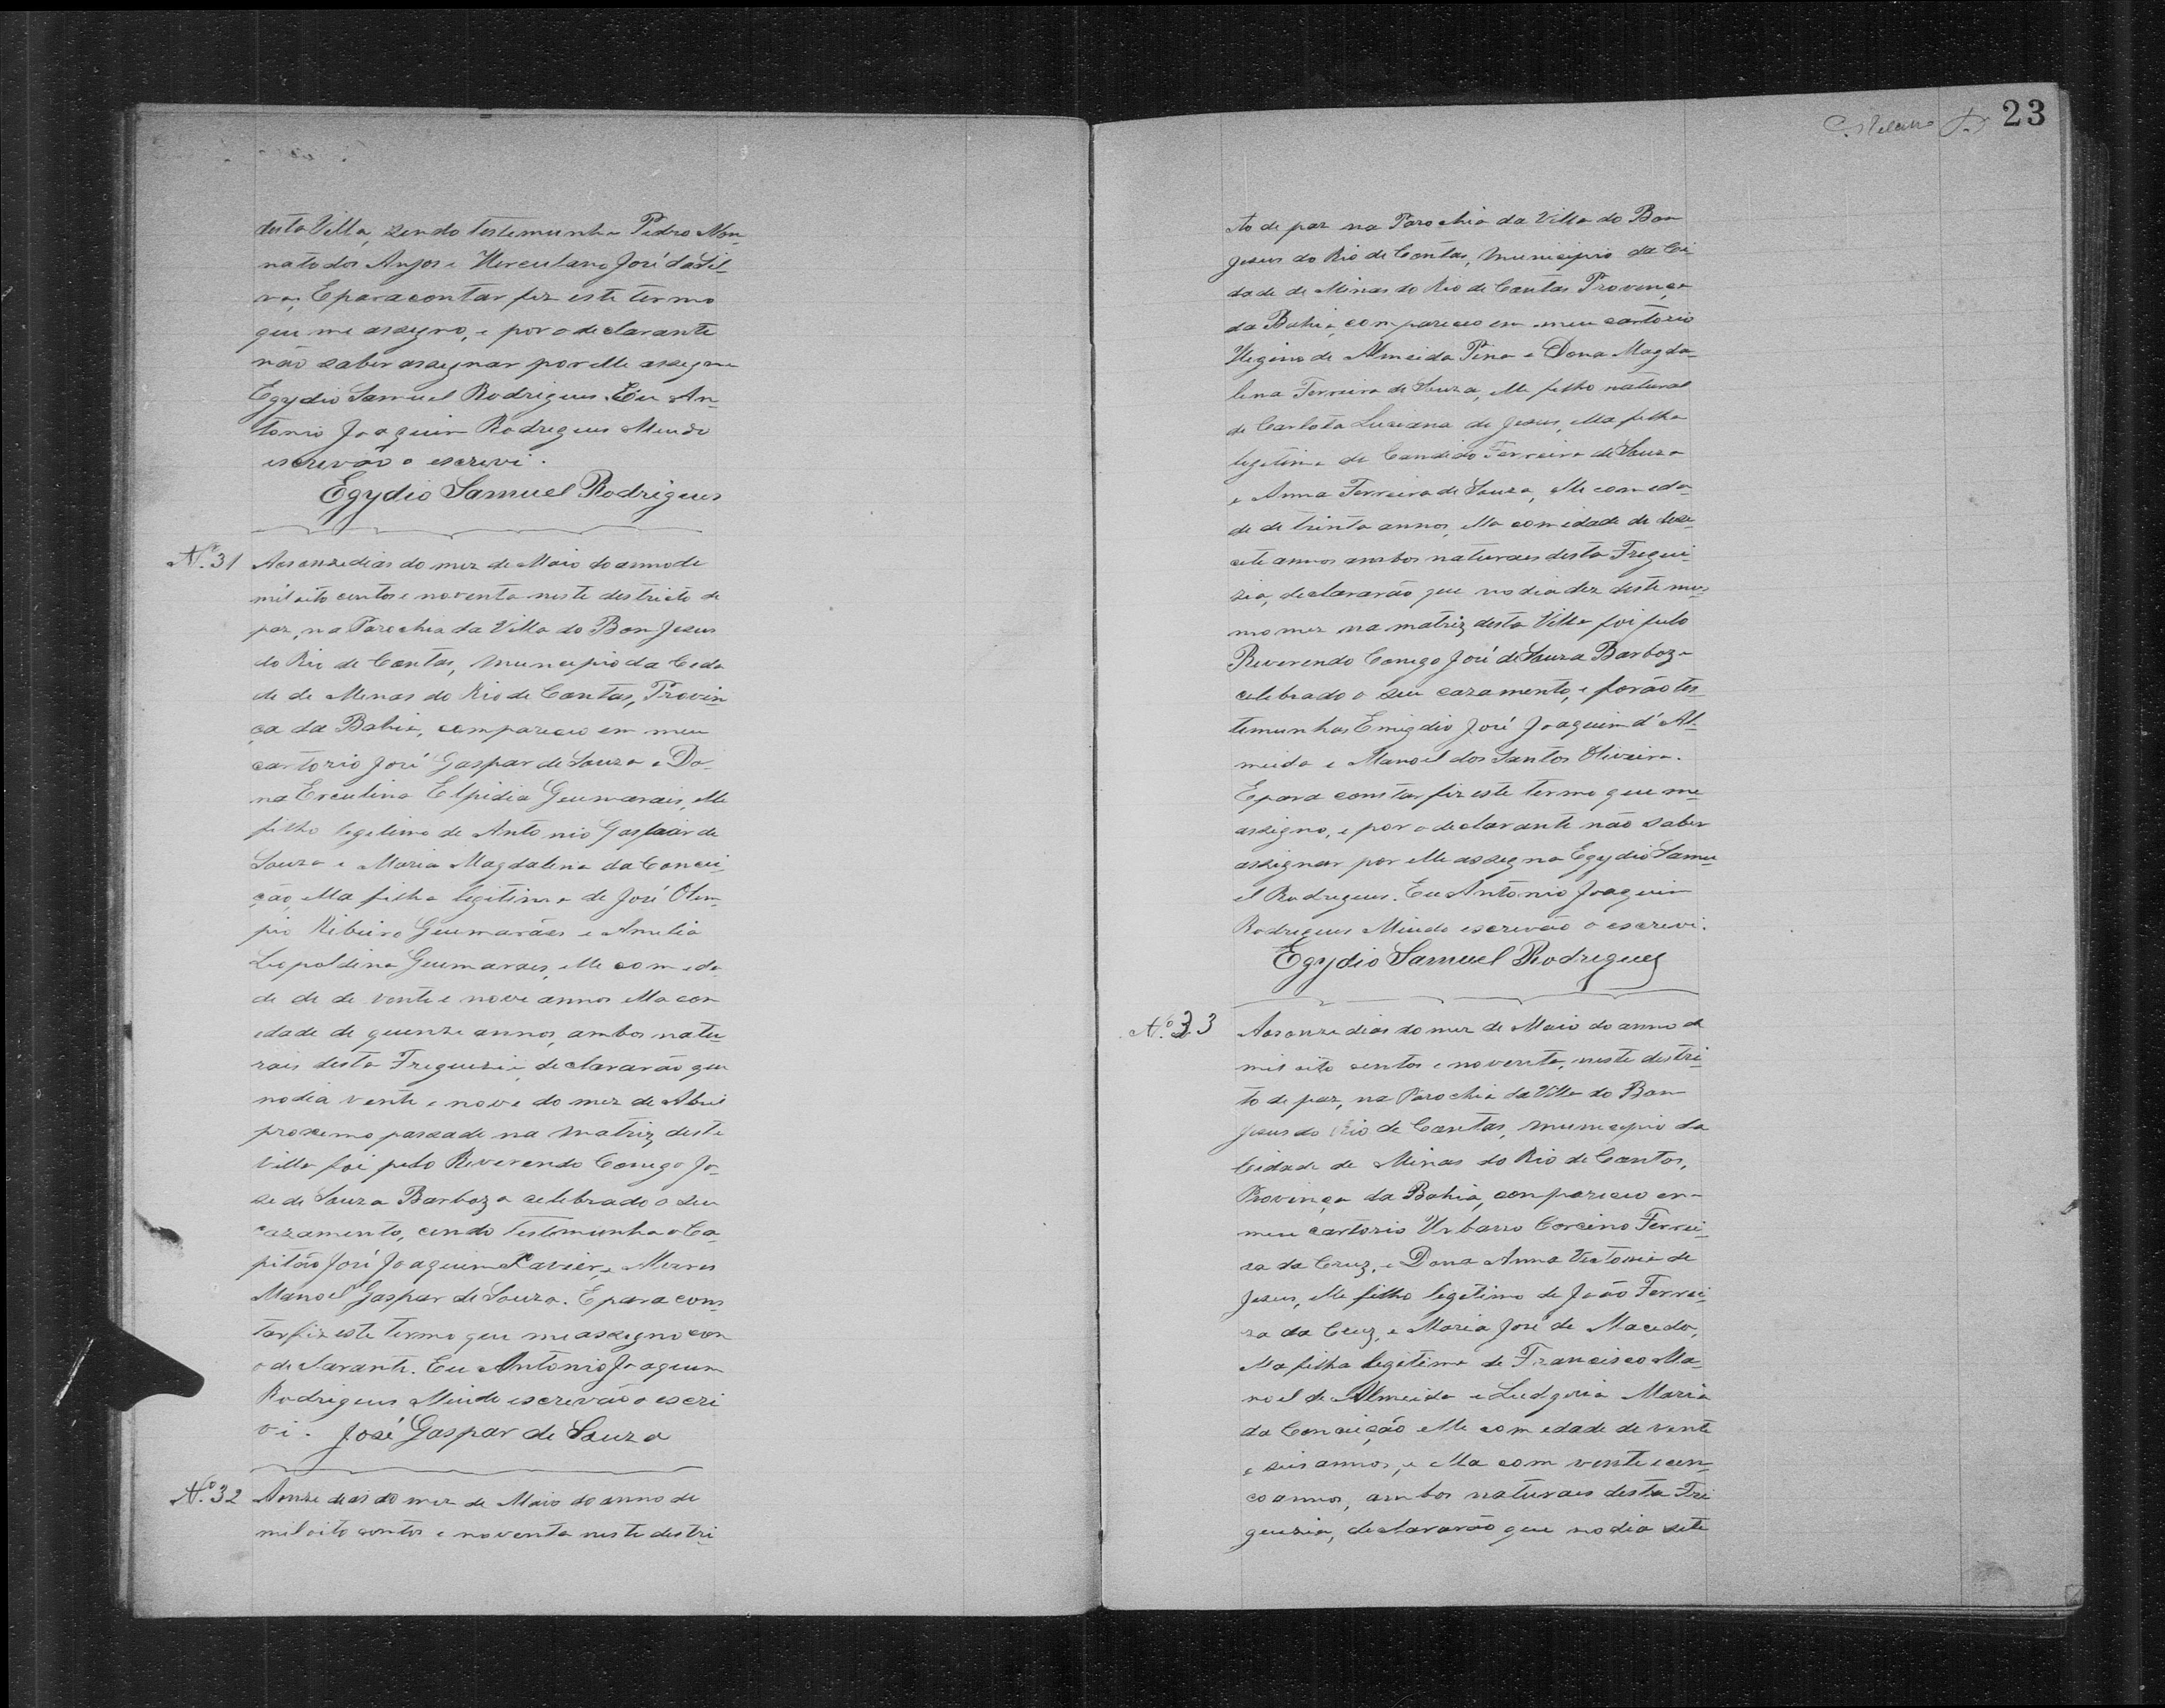 desta Villa, sendo testemunha Pedro Non-
nato dos Anjos e Herculano José da Sil-
va, E para contar fiz este termo
que me assegno, e por o declarante
não saber assegnar por elle assegna
Egydio Samuel Rodrigues. Eu An-
tonio Joaquim Rodrigues Mendo
escrevão o escrevi.
Egydio Samuel Rodrigues
Nº 31 Aos onze dias do mez de Maio do anno de
mil oito centos e noventa neste destricto de
paz, na Parochia da Villa do Bom Jesus
do Rio de Contas, Municipio da Cida
de de Menas do Rio de Contas, Provin
ça da Bahia, compareceu em meu
cartorio José Gaspar de Souza e Do-
na Erculina Elpidia Geumarais, elle
filho legetimo de Antonio Gaspar de
Souza e Maria Magdalena da Concei-
ção, ella filha legitima de José Olem-
pio Ribeiro Geumarães e Amelia
Leopoldina Geumaraes, elle com eda-
de de de vente e nove annos ella com
edade de quenze annos, ambos natu-
rais desta Freguezia, declararão que
no dia vente e nove do mez de Abril
proxemo passado na Matriz desta
Villa foi pelo Reverendo Conego Jo-
se de Souza Barboza celebrado o seu
cazamento, cendo testemunha o Ca-
pitão José Joaquim Xavier, e
Manoel Gaspar de Souza. E para cons
tar fiz este termo que me assegno con
o declarante. Eu Antonio Joaquim
Rodrigues Mendo escrevão o escre
vi. José Gaspar de Souza
Nº 32 Aonze dias do mez de Maio do anno de
mil oito centos e noventa neste destri-
23
cto de paz na Parochia da Villa do Bom
Jesus do Rio de Contas, Municipio da Ci
dade de Minas do Rio de Contas Provença
da Bahia, compareceo em meu cartorio
Hegino de Almeida Pina e Dona Magda-
lena Ferreira de Souza, elle filho natural
de Carlota Luziana de Jesus, ella filha
legetima de Candido Ferreira de Souza
e Anna Ferreira de Souza, elle com eda-
de de trinta annos, ella com idade de deze-
cete annos ambos naturaes desta Fregue-
zia, declararão que no dia dez deste mes-
mo mez na matriz desta Villa foi pelo
Reverendo Conego José de Souza Barboza
celebrado o seu cazamento, e forão tes-
temunhas Emigdio José Joaquim d'Al-
meida e Manoel dos Santos Oliveira.
E para constar fiz este termo que me
assigno, e por o declarante não saber
assignar por elle assegna Egydio Samu-
el Rodregues. Eu Antonio Joaquim
Rodrigues Mendo escrevão o escrevi.
Egydio Samuel Rodrigues
Nº 33 Aos onze dias do mez de Maio do anno de
mil oito centos e noventa, neste destri-
to de paz, na Parochia da Villa do Bom
Jesus do Rio de Contas, Municipio da
Cidade de Minas do Rio de Contas,
Provinça da Bahia, compareceu em
meu cartorio Urbano Corcino Ferrei-
ra da Cruz, e Dona Anna Victoria de
Jesus, elle filho legetimo de João Ferrei-
ra da Cruz, e Maria José de Macedo,
ella filha legitima de Francisco Ma-
noel de Almeida e Ludgeria Maria
da Conceição elle com edade de vente
e seis annos, e ella com vente e cen-
co annos, ambos naturaes desta Fre
guezia, declararão que no dia sete